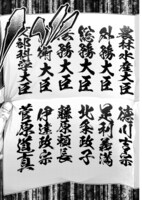 農林水産大臣 徳川吉宗
外務大臣 足利義満
総務大臣 北条政子
藤原頼長
大臣 伊達政宗
文部科学大臣 菅原道真